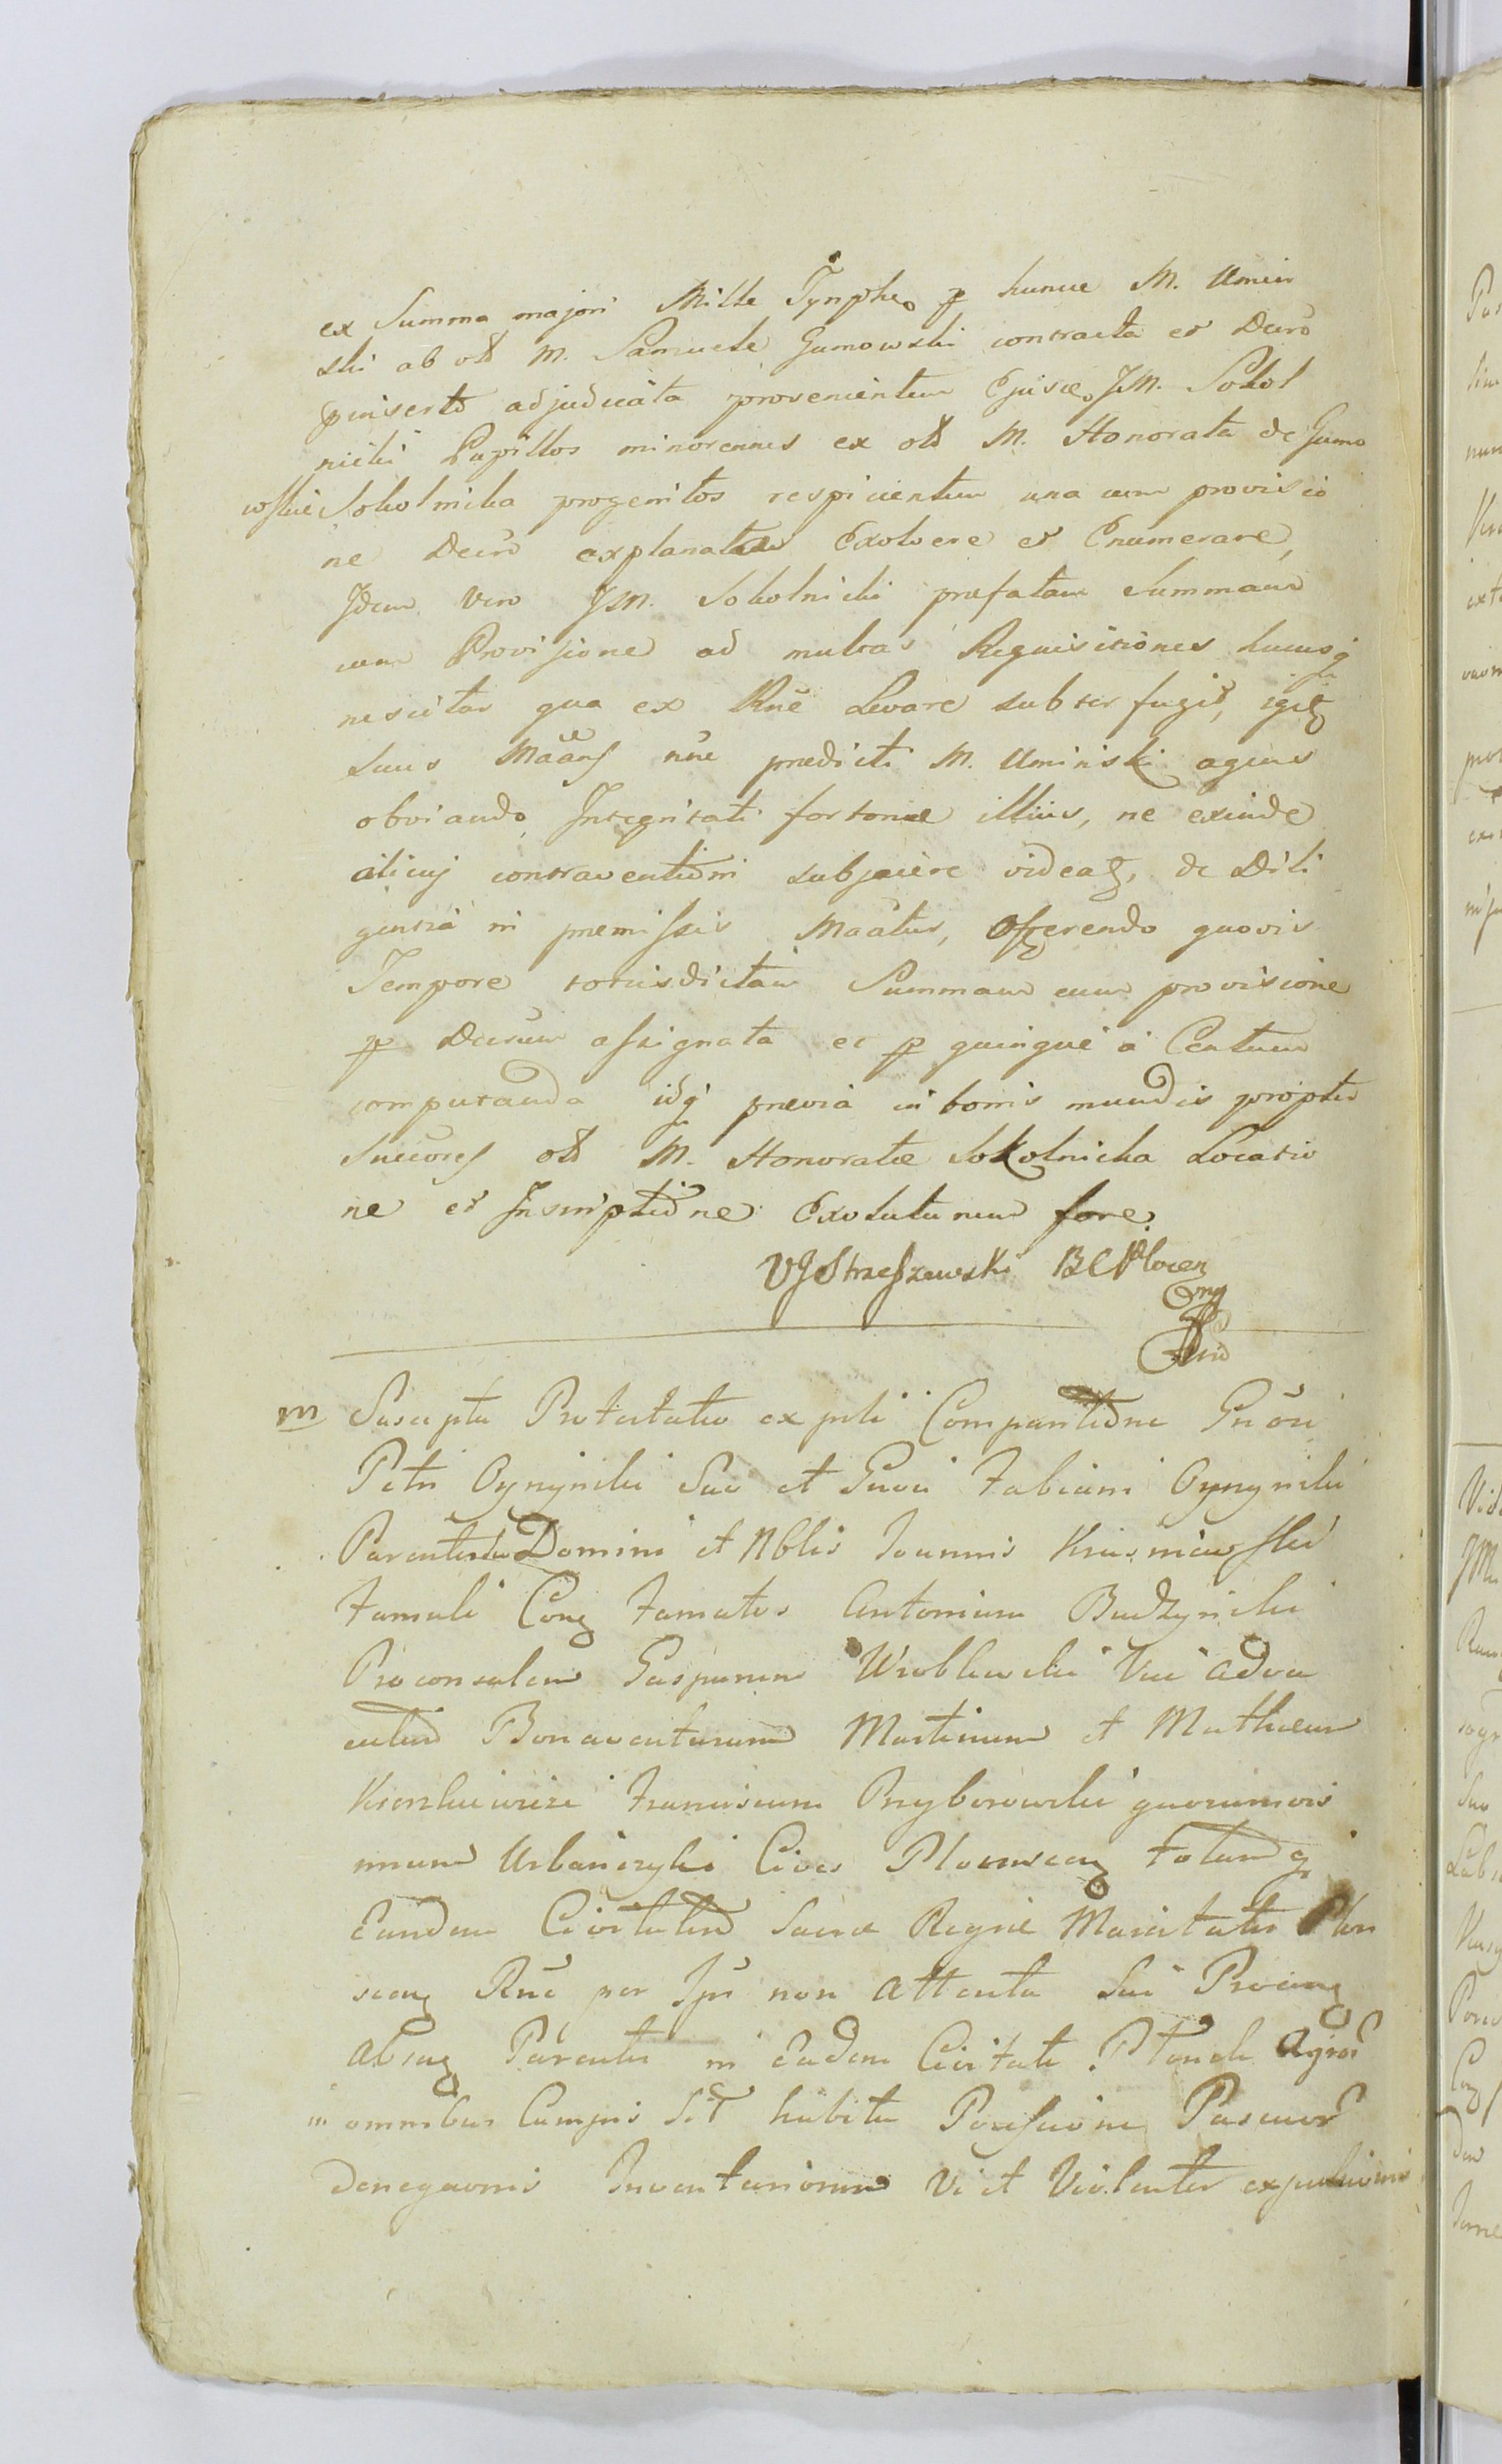 ex Summa majori Mille Tynpho p hunce M. Umin
ski ab olð M. Samuele Gumowski contracta et Decro
pinserto adjudicata provenientem Ejusce JM. Sokol
nicki Pupillos minorennes ex olð M. Honorata de Gumo
wskie Sokolnicka progenitos respicientem una cum provisio
ne Decro explanata Exolvere et Enumerare,
Idem vero JM. Sokolnicki præfatam Summam
cum Provisione ad multas Requisitiones hucusq
nescitur qua ex Rne Levare subterfugit, igit
suus Maans nne predicti M. Uminski agens
obviando Integritati fortunæ illius, ne exinde
alicuj contraventioni subjacere videat, de Dili
gentia in premissis Maatus, offerendo quovis
Tempore totiesdictam Summam cum provisione
p Decrum assignata et p quinque a Centum
computanda idq prævia in bonis mundis propter
Succores olð M. Honoratæ Sokolnicka Locatio
ne et Inscriptione Exoluturum fore.
VJStrzeszewski BCPlocen
mp
m Suscepta Protestatio ex psti Comparitione Gnosi
Petri Oyrzynski Suo et Gnosi Fabiani Oyrzynski
Parentis Domini et Nblis Joannis Krusniewski
Famuli Cong Famatos Antonium Budzynski
Proconsulem Gasparum Wroblewski Vice advo
catum Bonaventuram Martinum et Mathæum
Franciscum Przyborowski quorumvis
unum Urbanczyki Cives Plonscen totamq
Eandem Civitatem Sacræ Regiæ Maiestatis Plon
scen Rne per Ips non attenta Sui Principal
Absen Parentis in Eadem Civitate Agror
in omnibus Campis Sit habita Possessione Pascuor
denegaonis Inventariorum Vi et Violenter expulsionis